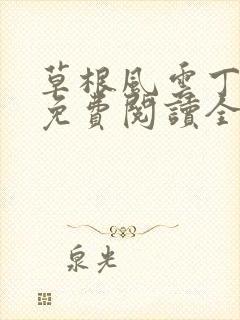 草根風雲丁
免費閱讀全
泉光